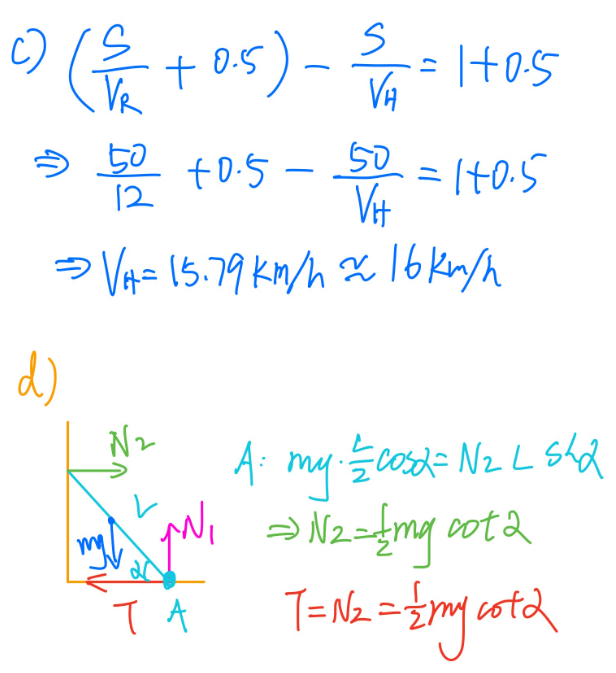 c) (S/V_R + 0.5) - S/V_H = 1+0.5
⇒ 50/12 + 0.5 - 50/V_H = 1+0.5
⇒ V_H = 15.79 km/h ≈ 16 km/h
d)
N2
L
N1
mg
α
T A
A: mg · L/2 cosα = N2 L sinα
⇒ N2 = 1/2 mg cot α
T = N2 = 1/2 mg cot α